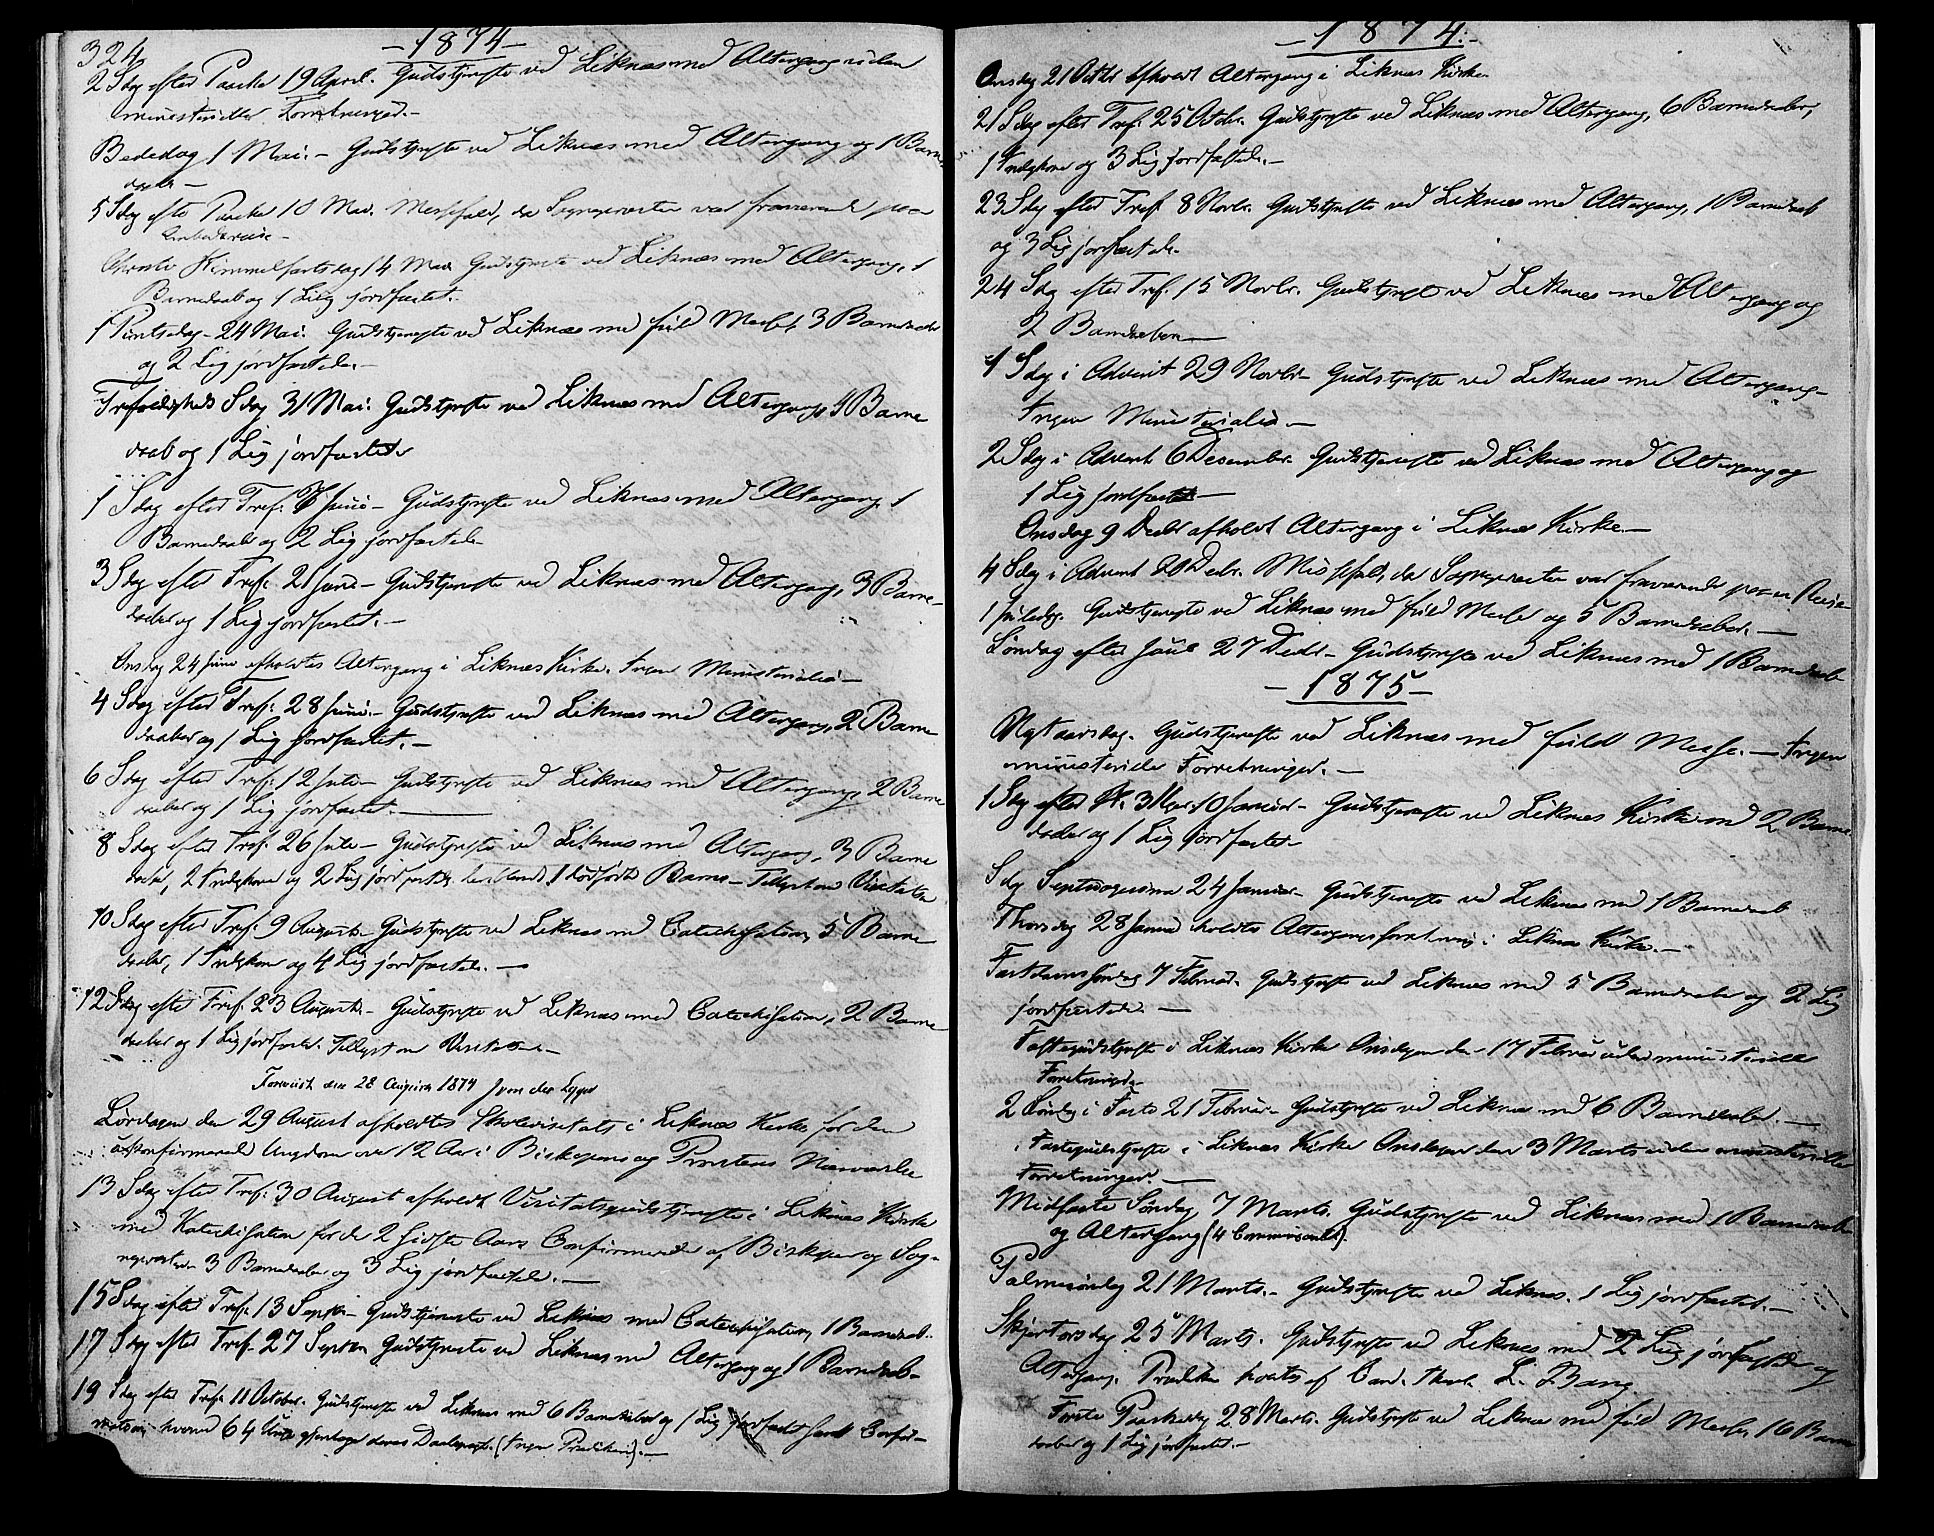 324
-1874-
2 Sdag efter Paaske 19 April. Gudstjeneste ved Liknæs med Altergang uden
ministerielle Forretninger.-
Bededag 1 Mai.- Gudstjeneste ved Liknæs med Altergang og 1 Barne
daab-
5 Sdag efter Paaske 10 Mai. Messefald, da Sognepræsten var fraværende paa
Embedsreise-
Christi Himmelfartsdag 14 Mai Gudstjeneste ved Liknæs med Altergang, 1
Barnedaab og 1 Liig jordfæstet.
1 Pintsedag - 24 Mai. Gudstjeneste ved Liknæs med fuld Messe 3 Barnedaaber
og 2 Lig jordfæstede.-
Trefoldigheds Sdag 31 Mai. Gudstjeneste ved Liknæs med Altergang, 4 Barne
daab og 1 Lig jordfæstede
1 Sdag efter Tref. 7 Juni- Gudstjeneste ved Liknæs med Altergang, 1
Barnedaab og 2 Lig jordfæstede
3 Sdag efter Tref. 21 Juni- Gudstjeneste ved Liknæs med Altergang, 3 Barne-
daaber og 1 Lig jordfæstet.-
Onsdag 24 Juni afholdtes Altergang i Liknæs Kirke. Ingen Ministerialia-
4 Sdag efter Tref. 28 Juni.- Gudstjeneste ved Liknæs med Altergang, 2 Barne
daaber og 1 Lig jordfæstet.-
6 Sdag efter Tref. 12 Juli- Gudstjeneste ved Liknæs med Altergang, 2 Barne
daaber og 1 Lig jordfæstet.-
8 Sdag efter Tref. 26 Juli- Gudstjeneste ved Liknæs med Altergang, 3 Barne
daab, 2 Indgkoner og 2 Lig jordfæstede, heriblandt 1 dødfødt Barn.- Tillyst om Visitatse
10 Sdag efter Tref. 9 August- Gudstjeneste ved Liknæs med Catechisation, 5 Barne
daaber, 1 Indgkone og 4 Lig jordfæstede.-
12 Sdag efter Tref. 23 August.- Gudstjeneste ved Liknæs med Catechisation, 2 Barne
daaber og 1 Lig jordfæstet. Tillyst om Visitatse.-
Foreviist den 28 August 1874 J von der Lippe
Lørdagen den 29 August afholdtes Skolevisitats i Liknæs Kirke for den
ukonfirmerede Ungdom over 12 Aar i Biskopens og Provstens Nærværelse
13 Sdag efter Tref. 30 August afholdt Visitatsgudstjeneste i Liknæs Kirke
med Katechisation for de 2 sidste Aars Confirmerede af Biskopen og Sog-
nepræsten 3 Barnedaaber og 3 Lig jordfæstede.-
15 Sdag efter Tref. 13 Septbr- Gudstjeneste ved Liknæs med Catechisation, 1 Barnedaab.
17 Sdag efter Tref. 27 Septbr Gudstjeneste ved Liknæs med Altergang og 1 Barnedaab-
19 Sdag efter Tref. 11 October. Gudstjeneste ved Liknæs med 6 Barnedaaber og 1 Lig jordfæstet samt Confir-
mation, hvorved 64 Unge gjentoge deres Daabspagt. (Ingen Prædiken).-
-1874.-
Onsdag 21 Octbr afholdt Altergang i Liknæs Kirke
21 Sdag efter Tref. 25 Octobr. Gudstjeneste ved Liknæs med Altergang, 6 Barnedaaber,
1 Indgkone og 3 Lig jordfæstede.-
23 Sdag efter Tref. 8 Novbr. Gudstjeneste ved Liknæs med Altergang, 1 Barnedaab
og 3 Lig jordfæstede.
24 Sdag efter Tref. 15 Novbr. Gudstjeneste ved Liknæs med Altergang og
2 Barnedaaber.-
1 Sdag i Advent 29 Novbr- Gudstjeneste ved Liknæs med Altergang-
Ingen Ministerialia.-
2 Sdag i Advent 6 December. Gudstjeneste ved Liknæs med Altergang og
1 Lig jordfæstet-
Onsdag 9 Decbr afholdt Altergang i Liknæs Kirke.-
4 Sdag i Advent 20 Decbr. Messefald, da Sognepræsten var fraværende paa en Reise-
1 Juledag. Gudstjeneste ved Liknæs med fuld Messe og 5 Barnedaaber.-
Søndag efter Juul 27 Decbr- Gudstjeneste ved Liknæs med 1 Barnedaab
-1875-
Nytaarsdag. Gudstjeneste ved Liknæs med fuld Messe.- Ingen
ministerielle Forretninger.-
1 Sdag efter H. 3 Kgr. 10 Januar- Gudstjeneste ved Liknæs Kirke med 2 Barne
daaber og 1 Lig jordfæstet-
Sdag Septuagesima 24 Januar- Gudstjeneste ved Liknæs med 1 Barnedaab
Thorsdag 28 Januar holdtes Altergangsforretning i Liknæs Kirke.-
Fastelavnssøndag 7 Februar. Gudstjeneste ved Liknæs med 5 Barnedaaber og 2 Lig
jordfæstede.-
Fastegudstjeneste i Liknæs Kirke Onsdagen den 17 Februar uden ministerielle
Forretninger-
2 Søndag i Faste 21 Februar- Gudstjeneste ved Liknæs med 6 Barnedaaber.-
Fastegudstjeneste i Liknæs Kirke Onsdagen den 3 Marts uden ministerielle
Forretninger.-
Midfaste Søndag 7 Marts. Gudstjeneste ved Liknæs med 1 Barnedaab
og Altergang (4 Communicanter).
Palmesøndag 21 Marts.- Gudstjeneste ved Liknæs. 1 Lig jordfæstet.-
Skjertorsdag 25 Marts. Gudstjeneste ved Liknæs med 2 Lig jordfæstede og
Altergang. Prædiken holdtes af Cand. theol. L. Bang
Første Paaskedag 28 Marts. Gudstjeneste ved Liknæs med fuld Messe, 16 Barne
daaber og 1 Lig jordfæstet.-